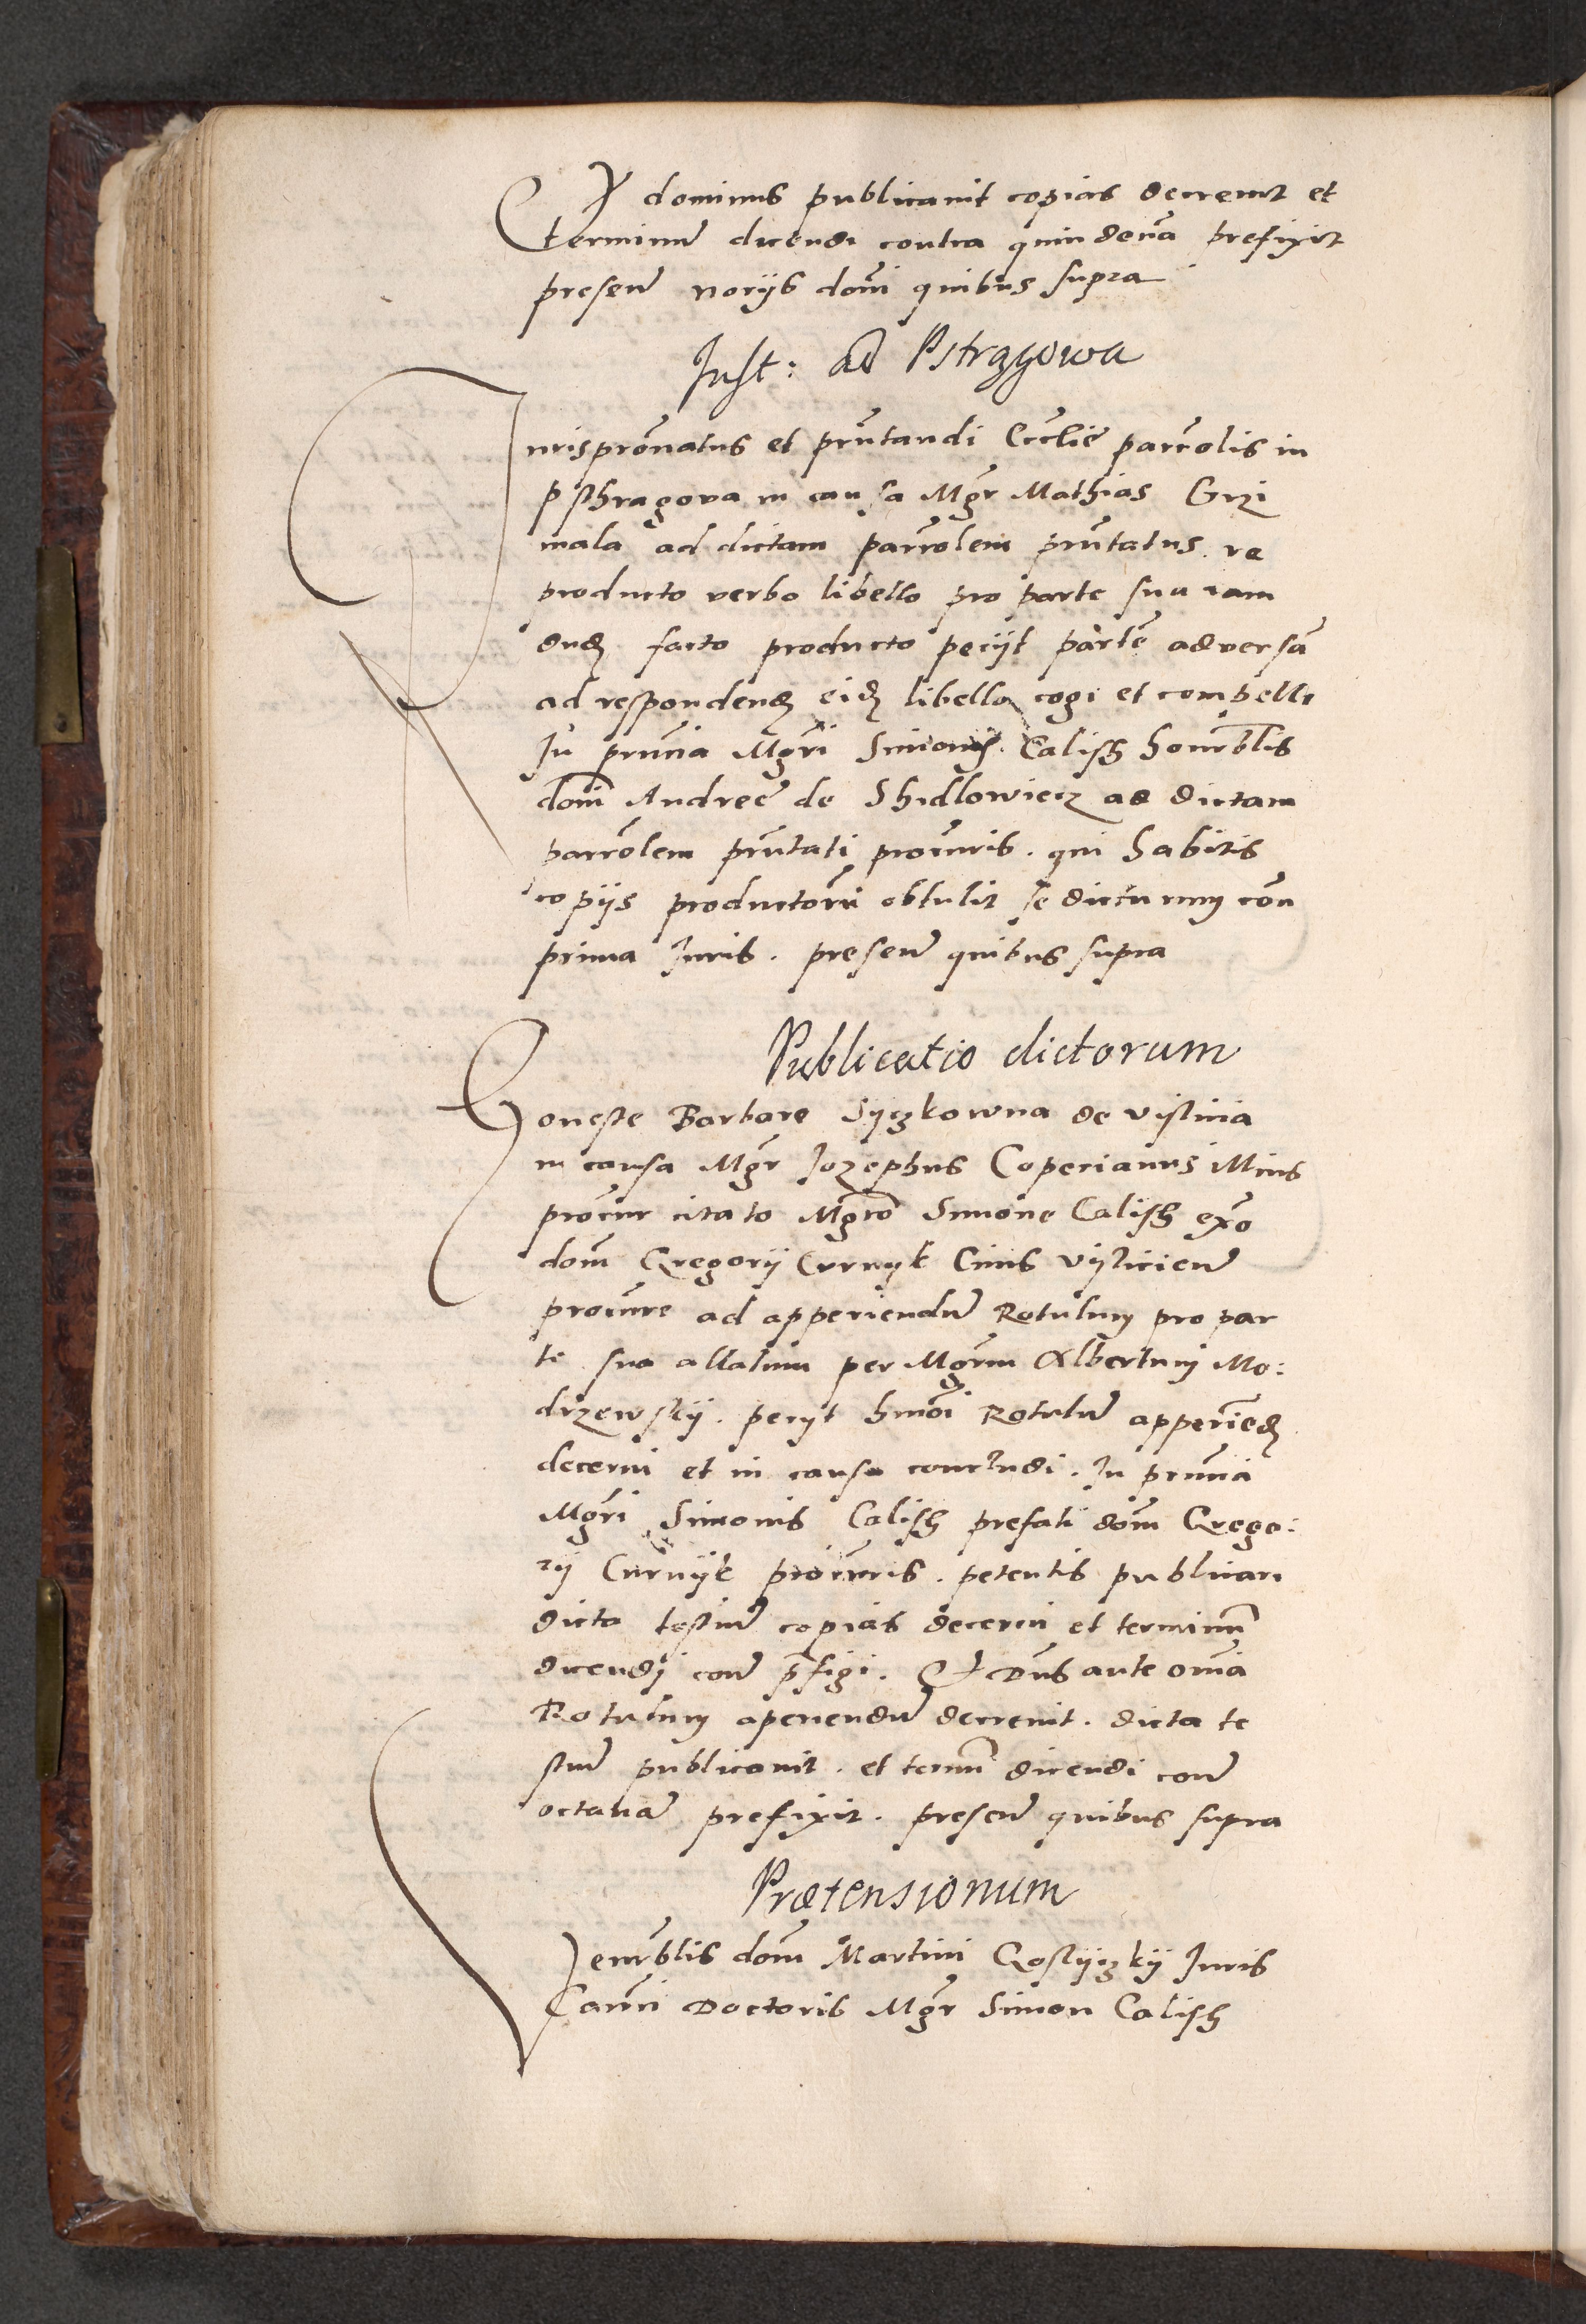 Et dominus publicauit copias decreuit et
terminū dicendi contra quindenā prefixit
presen̄ norijs domī quibus supra
Inst: ad Pstrągowa
Iurisprōnatus et prn̄tandi Eccl̄ie parrōlis in
Psthragowa in causa Mgr̄ Mathias Grzi
mala ad dictam parrōlem prn̄tatus re
producto verbo libello pro parte sua cam
facto producto pecijt partē adversā
ad respondend eid libello cogi et compelli
In prn̄cia Mgr̄i Simonis Calisch honrb̄lis
domī Andree de Shidlowiecz ad dictam
parrōlem prn̄tati procuris . qui habitis
copijs productorū obtulit se dicturum con̄
prima Iuris . presen̄ quibus supra
Publicatio dictorum
Honeste Barbare Syczkowna de vislicia
in causa Mgr̄ Iozephus Copecianus illius
procur citato Mgrō Simone Calisch ex̄o
dom̄ Gregorij Curnyk Ciuis vijslicien̄
procure ad apperiendū Rotulum pro par
te sua allatum per Mgr̄m Albertum Mo:
drzewskij . pecyt hmōi Rotulū apperiēd
decerni et in causa concludi . In prn̄cia
Mgr̄i Simonis Calisch prefati dom̄ Grego:
rij Curnijk procuris . petentis publicari
dicta testiū copias decerni et terminum
dicendi con̄ p̄figi . Et Dn̄s ante omīa
Rotulum aperiendū decreuit . dicta te
stiū publicauit . et termī dicendi con̄
octauā prefixit . presen̄ quibus supra
Prætensionum
Venrb̄lis dom̄ Martini Gostijczkij Iuris
Cann̄ci Doctoris Mgr̄ Simon Calisch